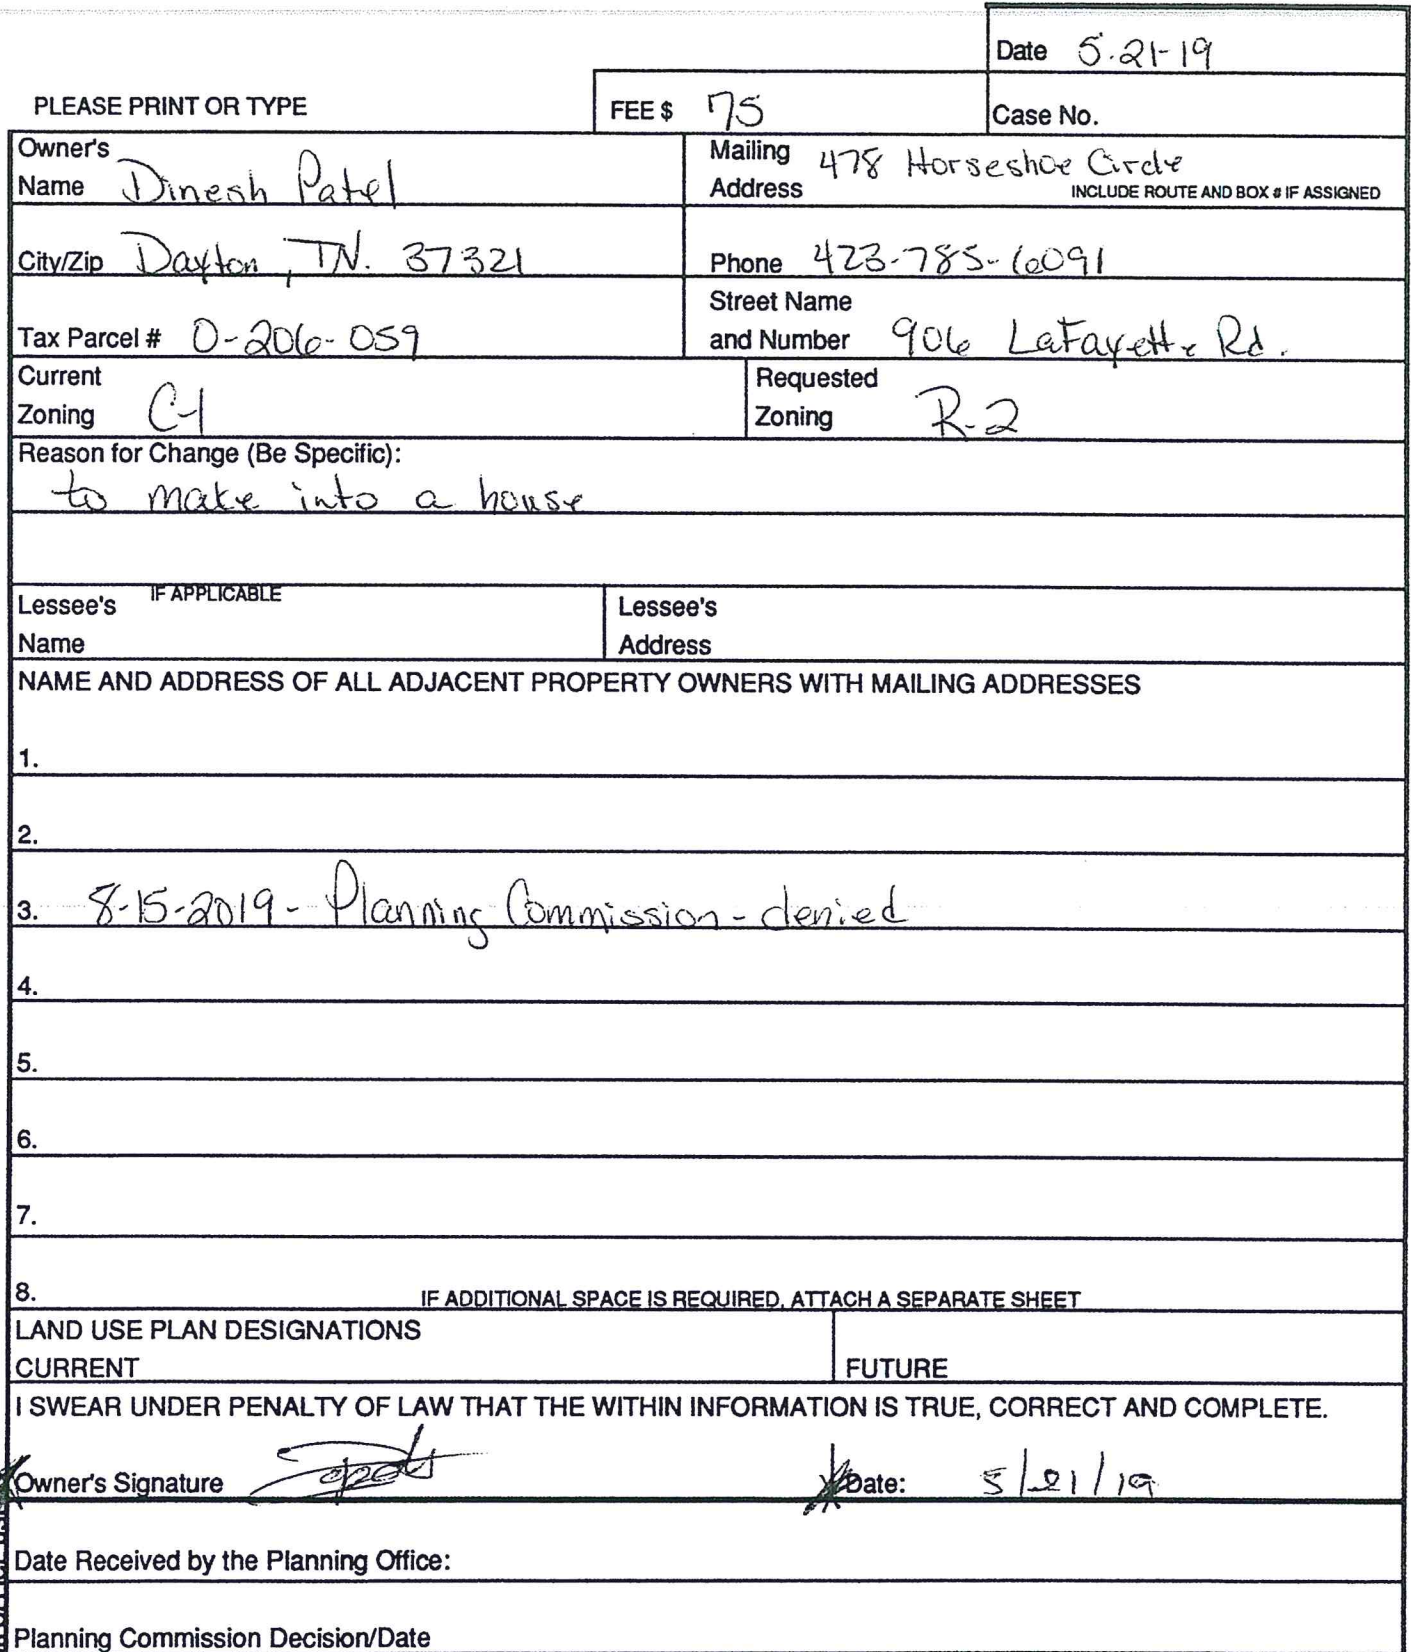 Date 5-21-19
PLEASE PRINT OR TYPE FEE $ 75 Case No.
Owner's Mailing 478 Horseshoe Circle
Name Dinesh Patel Address INCLUDE ROUTE AND BOX # IF ASSIGNED
City/Zip Dayton, TN. 37321 Phone 423-785-6091
Street Name
Tax Parcel # 0-206-059 and Number 906 LaFayette Rd.
Current Requested
Zoning C-1 Zoning R-2
Reason for Change (Be Specific):
to make into a house
Lessee's IF APPLICABLE Lessee's
Name Address
NAME AND ADDRESS OF ALL ADJACENT PROPERTY OWNERS WITH MAILING ADDRESSES
1.
2.
3. 8-15-2019 - Planning Commission - denied
4.
5.
6.
7.
8. IF ADDITIONAL SPACE IS REQUIRED, ATTACH A SEPARATE SHEET
LAND USE PLAN DESIGNATIONS
CURRENT FUTURE
I SWEAR UNDER PENALTY OF LAW THAT THE WITHIN INFORMATION IS TRUE, CORRECT AND COMPLETE.
Owner's Signature Date: 5/21/19
Date Received by the Planning Office:
Planning Commission Decision/Date